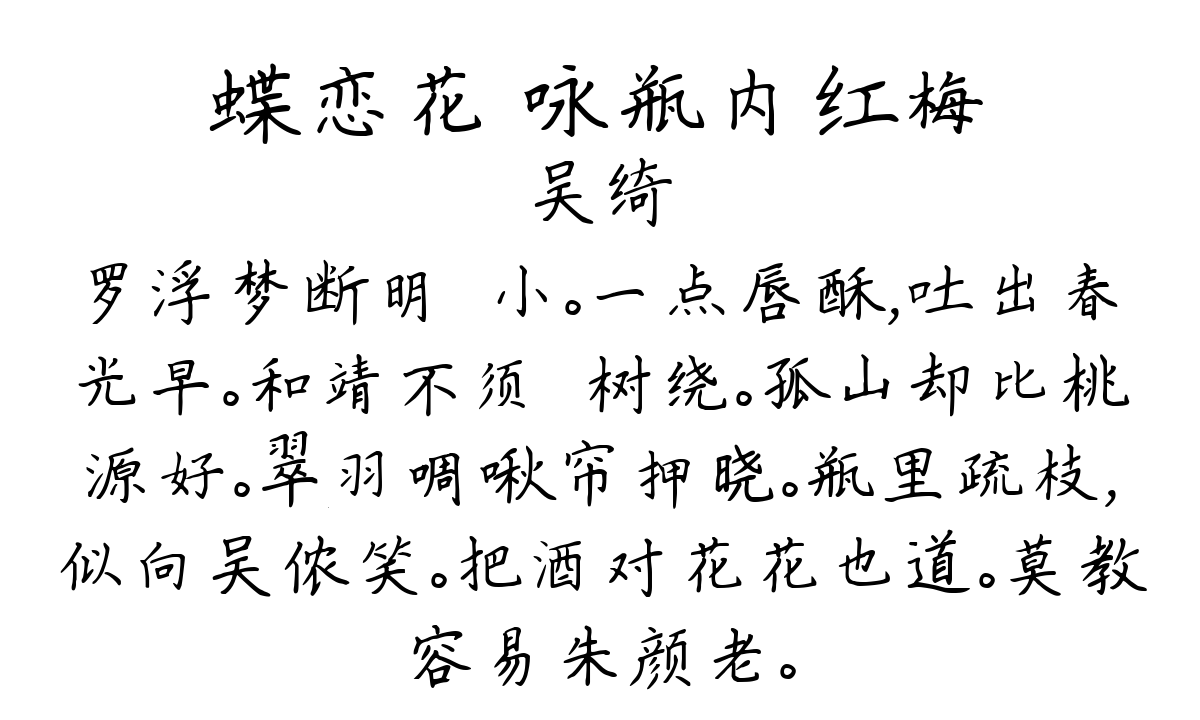 蝶恋花 咏瓶内红梅
吴绮
罗浮梦断明 小。一点唇酥,吐出春
光早。和靖不须 树绕。孤山却比桃
源好。翠羽啁啾帘押晓。瓶里疏枝,
似向吴侬笑。把酒对花花也道。莫教
容易朱颜老。